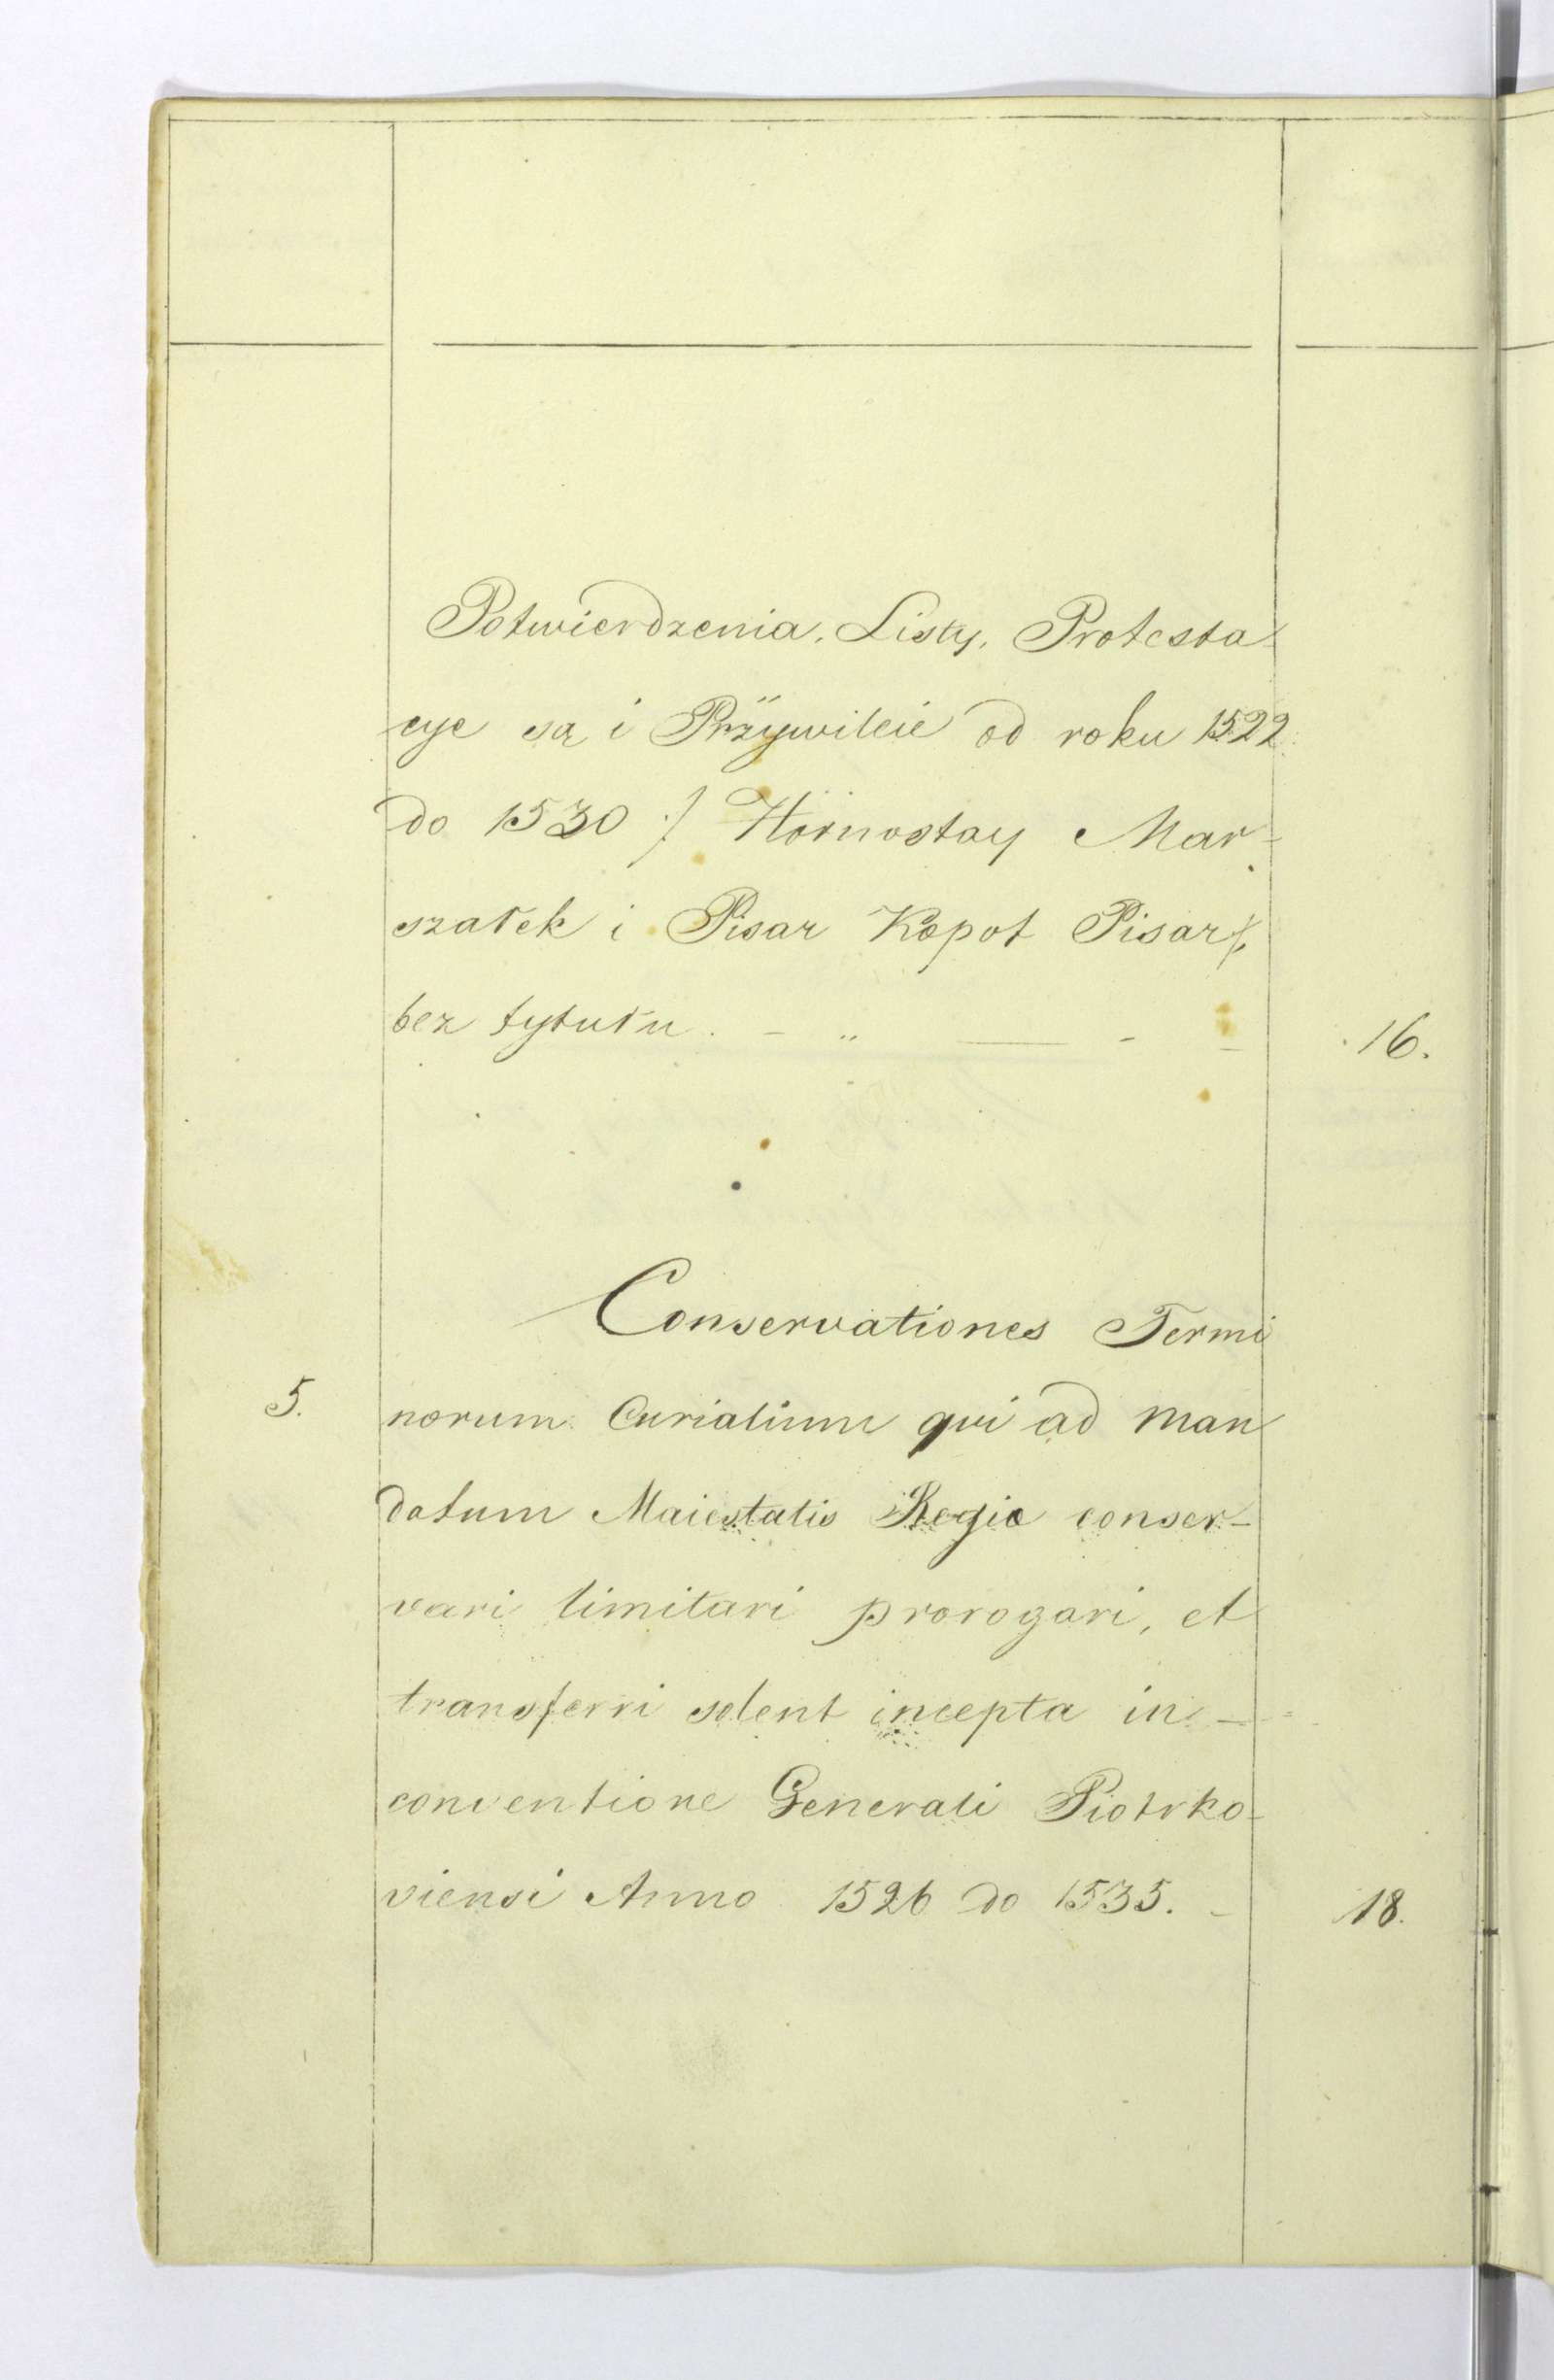 Potwierdzenia, Listy, Protesta-
cye są i Przywileie od roku 1522
do 1530 /: Hornostay Mar-
szałek i Pisar Kopot Pisar :/
bez tytułu. - „ — - -
16.
Conservationes Termi
5. norum Curialium qui ad man
datum Maiestatis Regie conser-
vari limitari prorogari, et
transferri solent incepta in -
conventione Generali Piotrko-
viensi Anno 1526 do 1535. -
18.